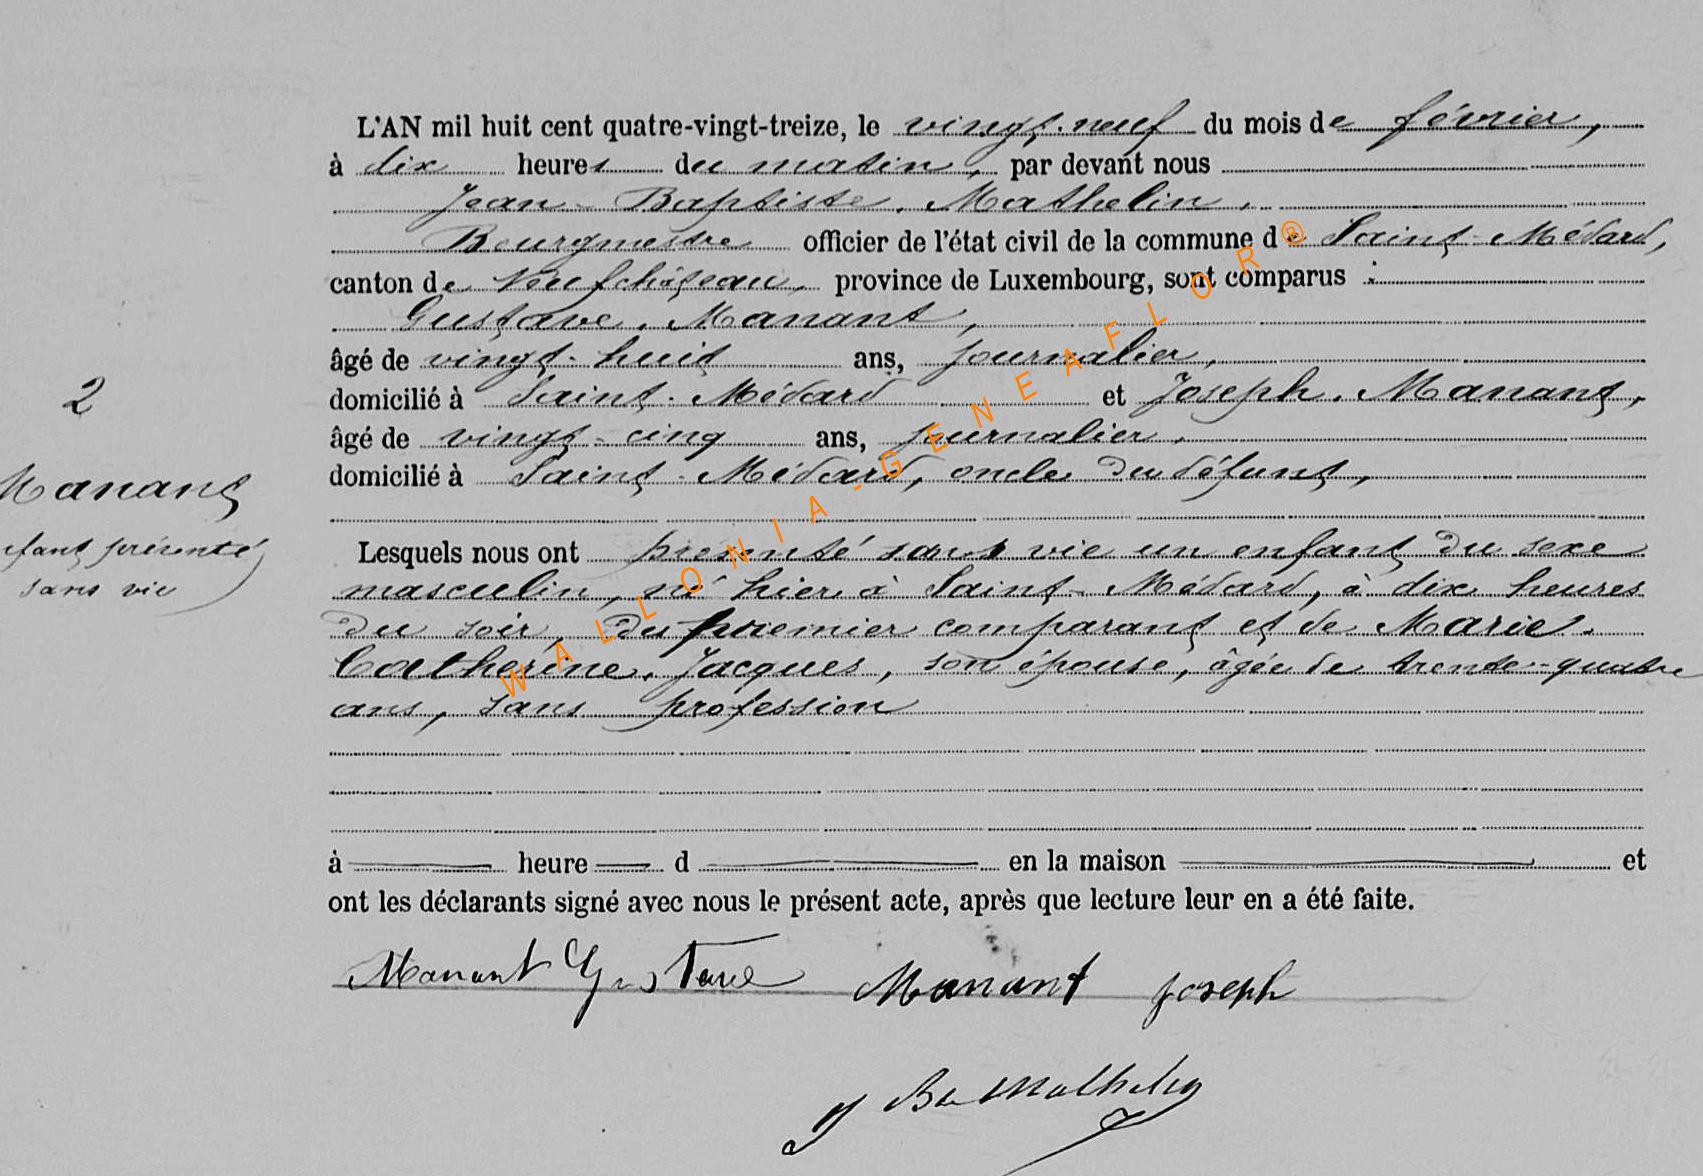 L'AN mil huit cent quatre-vingt-treize, le vingt-neuf du mois de février,
à dix heures du matin, par devant nous
Jean-Baptiste. Mathelin,
Bourgmestre officier de l'état civil de la commune de Saint-Médard,
canton de Neufchâteau, province de Luxembourg, sont comparus :
Gustave. Manant,
âgé de vingt-huit ans, journalier,
2
domicilié à Saint-Médard et Joseph. Manant,
âgé de vingt-cinq ans, journalier,
Manant
domicilié à Saint-Médard, oncle du défunt,
enfant présenté
sans vie
Lesquels nous ont présenté sans vie un enfant du sexe
masculin, né hier à Saint-Médard, à dix heures
du soir, du premier comparant et de Marie.
Catherine. Jacques, son épouse, âgée de trente-quatre
ans, sans profession
à heure d en la maison et
ont les déclarants signé avec nous le présent acte, après que lecture leur en a été faite.
Manant Gustave Manant Joseph
J Bte Mathelin
WALLONIA-GENEAFLOR®